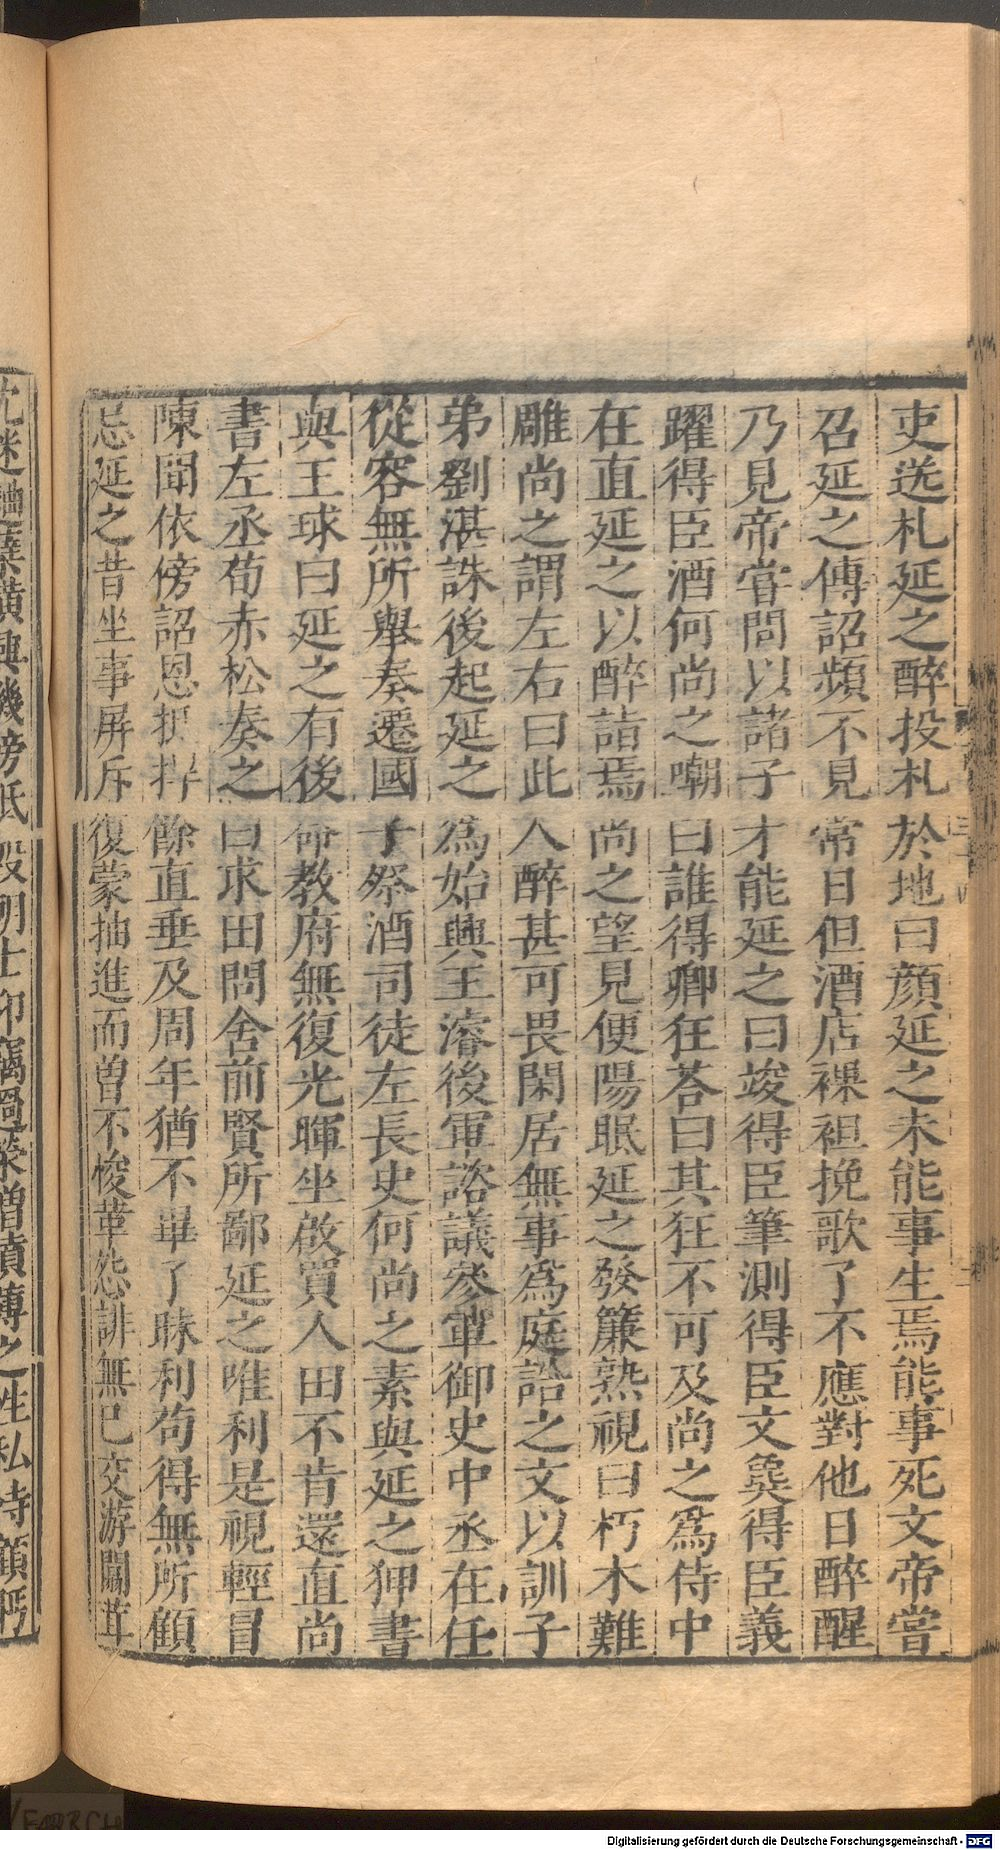 吏送札延之醉投札於地曰顔延之未能事生焉能事死文帝嘗
召延之傳詔頻不見常日但酒店裸袒挽歌了不應對他日醉醒
乃見帝嘗問以諸子才能延之曰竣得臣筆測得臣文㚟得臣義
躍得臣酒何尚之嘲曰誰得卿狂荅曰其狂不可及尚之爲侍中
在直延之以醉詣焉尚之望見便陽眠延之發簾熟視曰朽木難
雕尚之謂左右曰此人醉甚可畏閑居無事爲庭誥之文以訓子
弟劉湛誅後起延之爲始興王濬後軍諮議參軍御史中丞在任
從容無所舉奏遷國子祭酒司徒左長史何尚之素與延之狎書
與王球曰延之有後命教府無復光暉坐啟買人田不肯還直尚
書左丞荀赤松奏之曰求田問舍前賢所鄙延之唯利是視輕冒
陳聞依傍詔恩抵捍餘直垂及周年猶不畢了昧利苟得無所顧
忌延之昔坐事屏斥復蒙抽進而曽不悛革怨誹無已交游闒茸
沈迷麴糵橫興譏謗詆毀朝士仰竊過榮增憤薄之性私恃顧眄
Digitalisierung gefördert durch die Deutsche Forschungsgemeinschaft - DFG